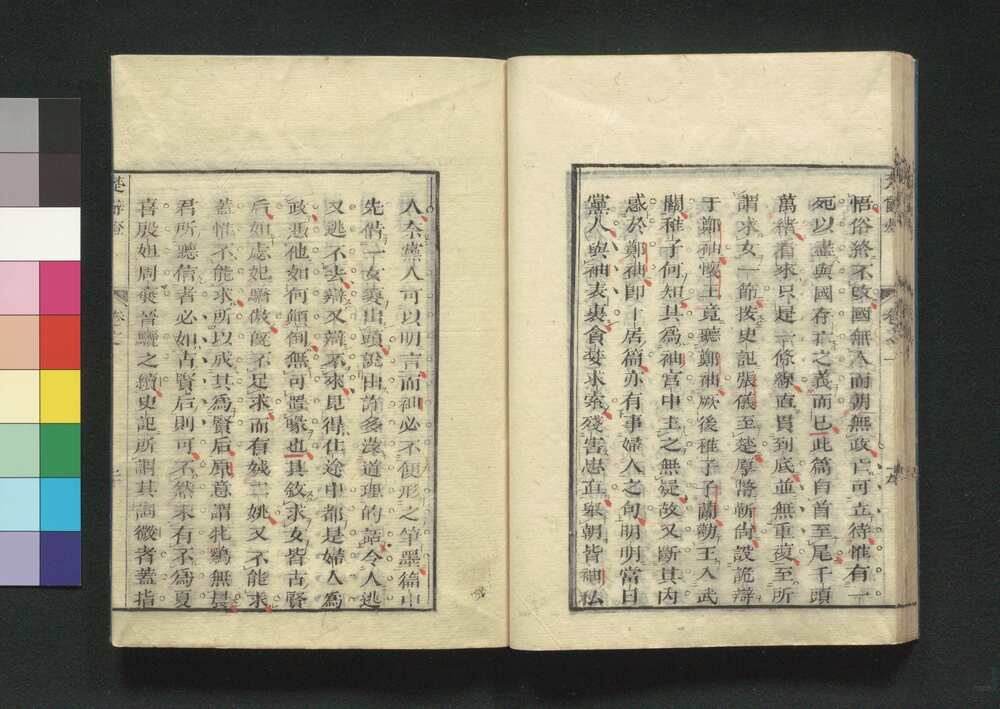 悟俗終不改國無人而朝無政亡可立待惟有一
死以盡與國存亡之義而已此篇自首至尾千頭
萬緒看來只是一條線直貫到底並無重複至所
謂求女一節按史記張儀至楚厚幣靳尚設詭辯
于鄭袖懷王竟聽鄭袖厥後稚子子蘭勸王入武
關稚子何知其為袖宮中主之無疑故又斷其內
惑於鄭袖即卜居篇亦有事婦人之句明明當日
黨人與袖表裏貪婪求索殘害忠直舉朝皆袖私
人奈黨人可以明言而袖必不便形之筆墨篇中
先借一女嬃出頭說出許多沒道理的話令人逃
又逃不去辯又辯不來見得仕途中都是婦人為
政憑他如何顛倒無可置喙也其敘求女皆古賢
后如虙妃驕傲既不足求而有娀二姚又不能求
蓋惜不能求所以成其為賢后原意謂牝鷄無晨
君所聽信者必如古賢后則可不然未有不為夏
喜殷妲周褒晉驪之續史記所謂其詞微者蓋指
楚辭燈
卷之一